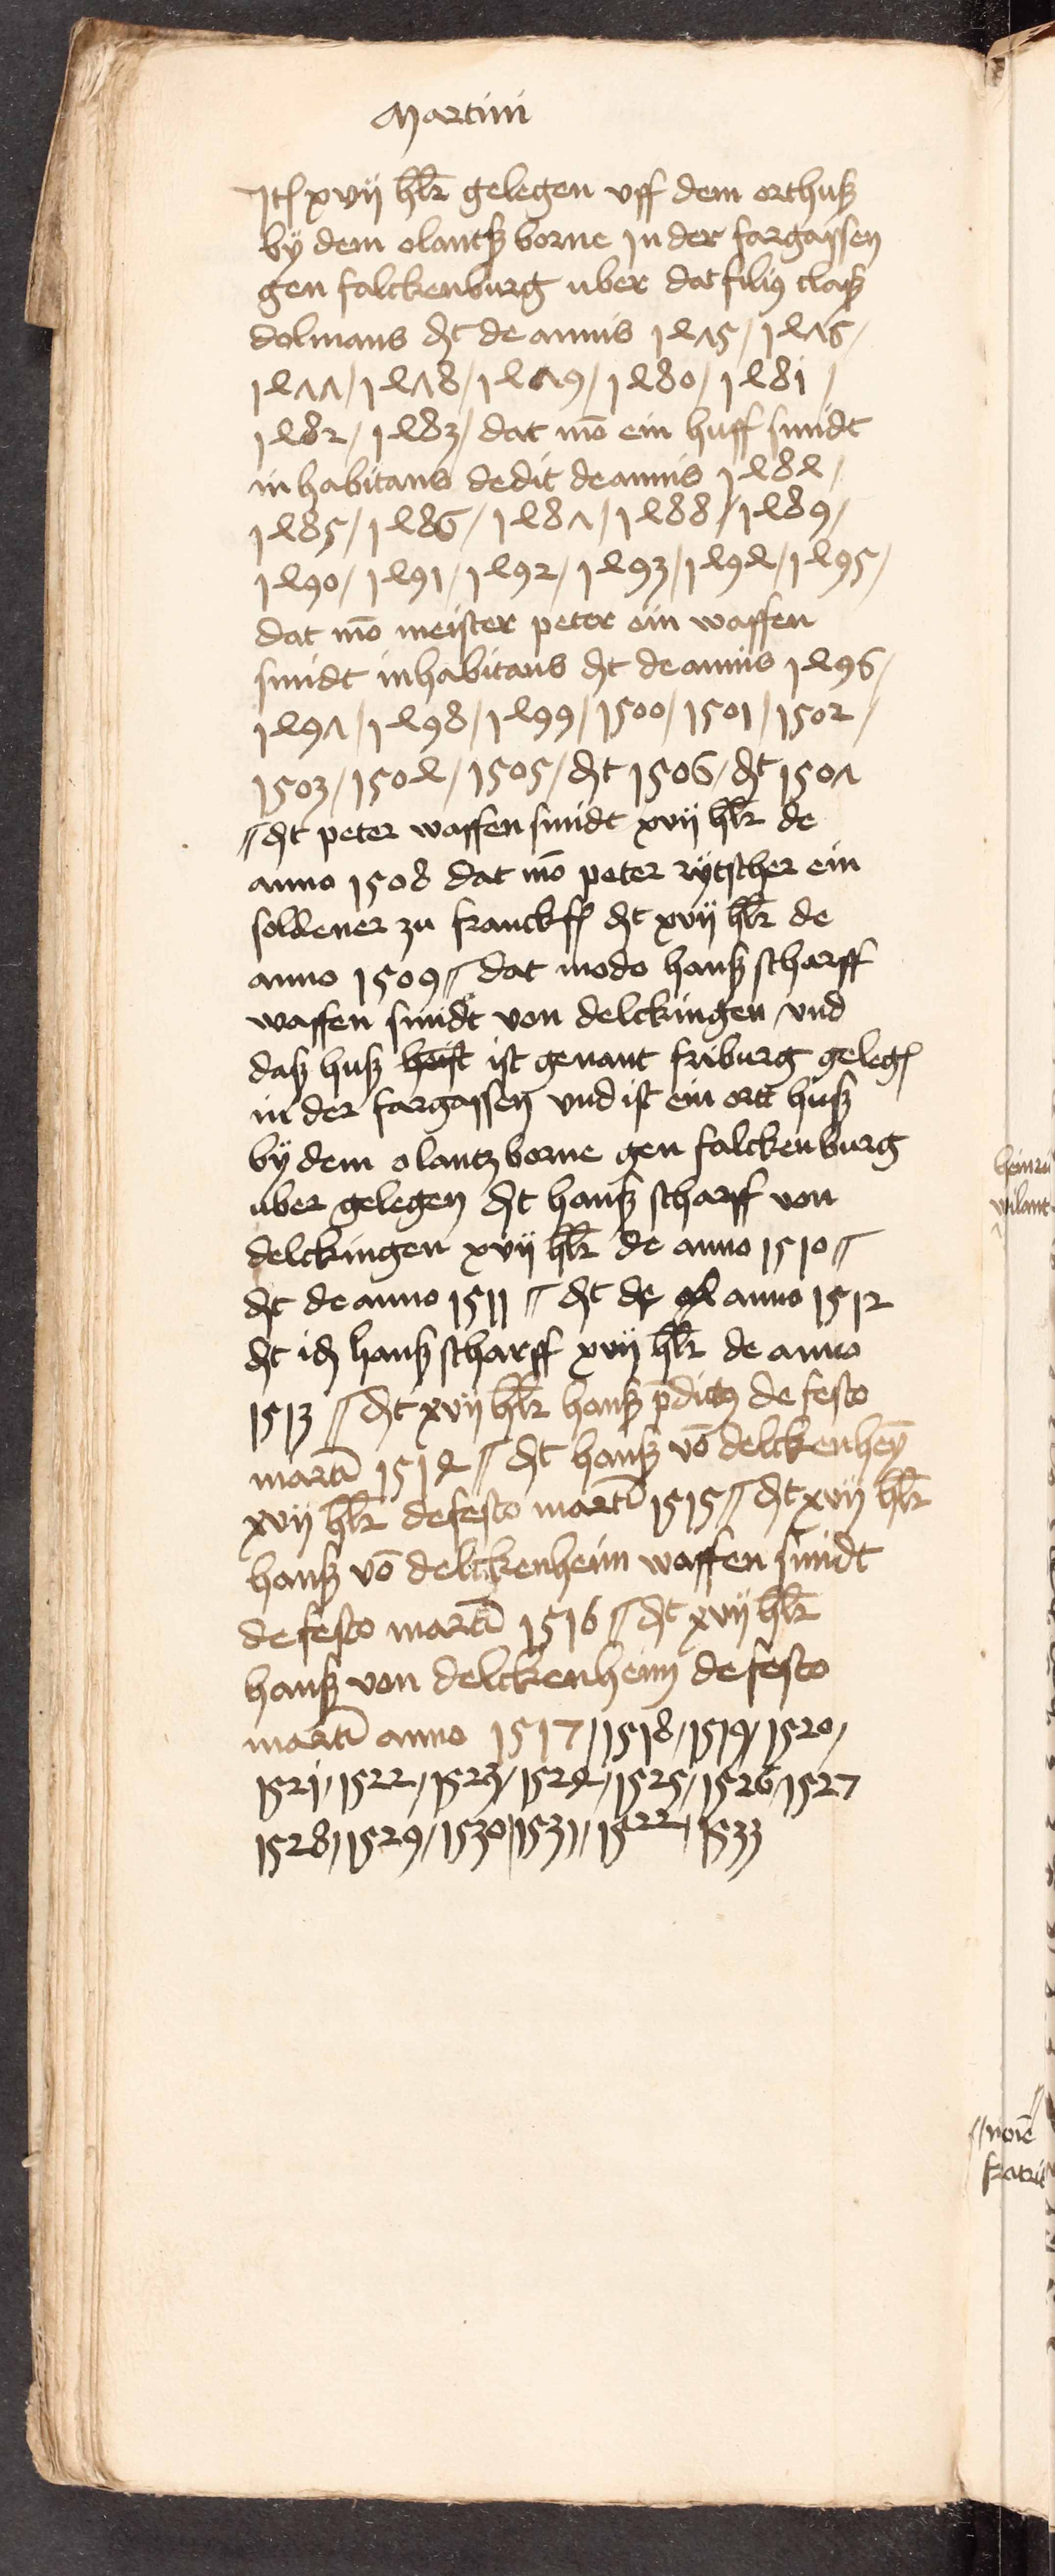 Martini
Itꝭ xvij hlr̄ gelegen vff dem orthuß
bÿ dem olantß borne Jn der fargassen
gen falckenburg uber dat filiꝰ claß
dolmans dt de annis 1475/ 1476/
1477/ 1478/ 1479/ 1480/ 1481/
1482/ 1483/ dat mō ein huff smidt
inhabitans dedit de annis 1484/
1485/ 1486/ 1487/ 1488/ 1489/
1490/ 1491/ 1492/ 1493/ 1494/ 1495/
dat mō meister peter ein waffen
smidt inhabitans dt de annis 1496/
1497/ 1498/ 1499/ 1500/ 1501/ 1502/
1503/ 1504/ 1505/ dt 1506/ dt 1507
//dt peter waffensmidt xvij hlr̄ de
anno 1508 dat mō peter rÿtscher ein
soldener zu franckfꝭ dt xvij hlr̄ de
anno 1509// dat modo hanß scharff
waffen smidt von delckingen vnd
daß huß heist ist genant friburg gelegꝭ
in der fargassen vnd ist ein ort huß
bÿ dem olantz borne gen falckenburg
uber gelegen dt hanß scharff von
delckingen xvij hlr̄ de anno 1510//
dt de anno 1511 // dt de anno 1512
dt idem hanß scharff xvij hlr̄ de anno
1513 // dt xvij hlr̄ hanß p̄dictꝰ de festo
martī 1514 // dt hanß vō delckenheȳ
xvij hlr̄ de festo martī 1515 // dt xvij hlr̄
hanß vō delckenheim waffen smidt
de festo martī 1516 // dt xvij hlr̄
hanß von delckenheim de festo
martī anno 1517/ 1518/ 1519/ 1520/
1521/ 1522/ 1523/ 1524/ 1525/ 1526/ 1527
1528/ 1529/ 1530/ 1531/ 1522/ 1533